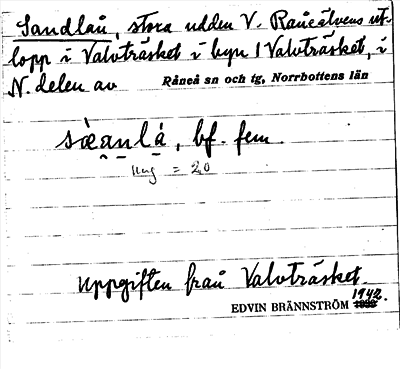 Sandlån, stora udden V. Råneälvens ut-
lopp i Valvträsket i byn 1 Valvträsket, i
N. delen av Råneå sn och tg, Norrbottens län
sàanlá, bf. fem.
ung = 20
Uppgiften från Valvträsket.
EDVIN BRÄNNSTRÖM 1942.